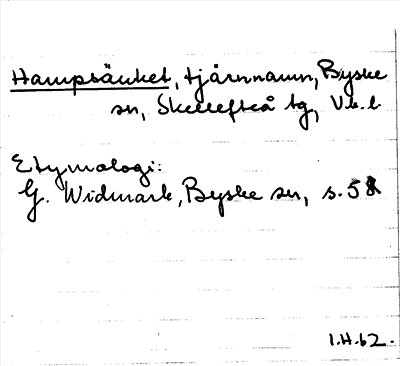 Hampsänket, tjärnnamn, Byske
sn, Skellefteå tg, Vb. l
Etymologi:
G. Widmark, Byske sn, s. 58
1.H.62.